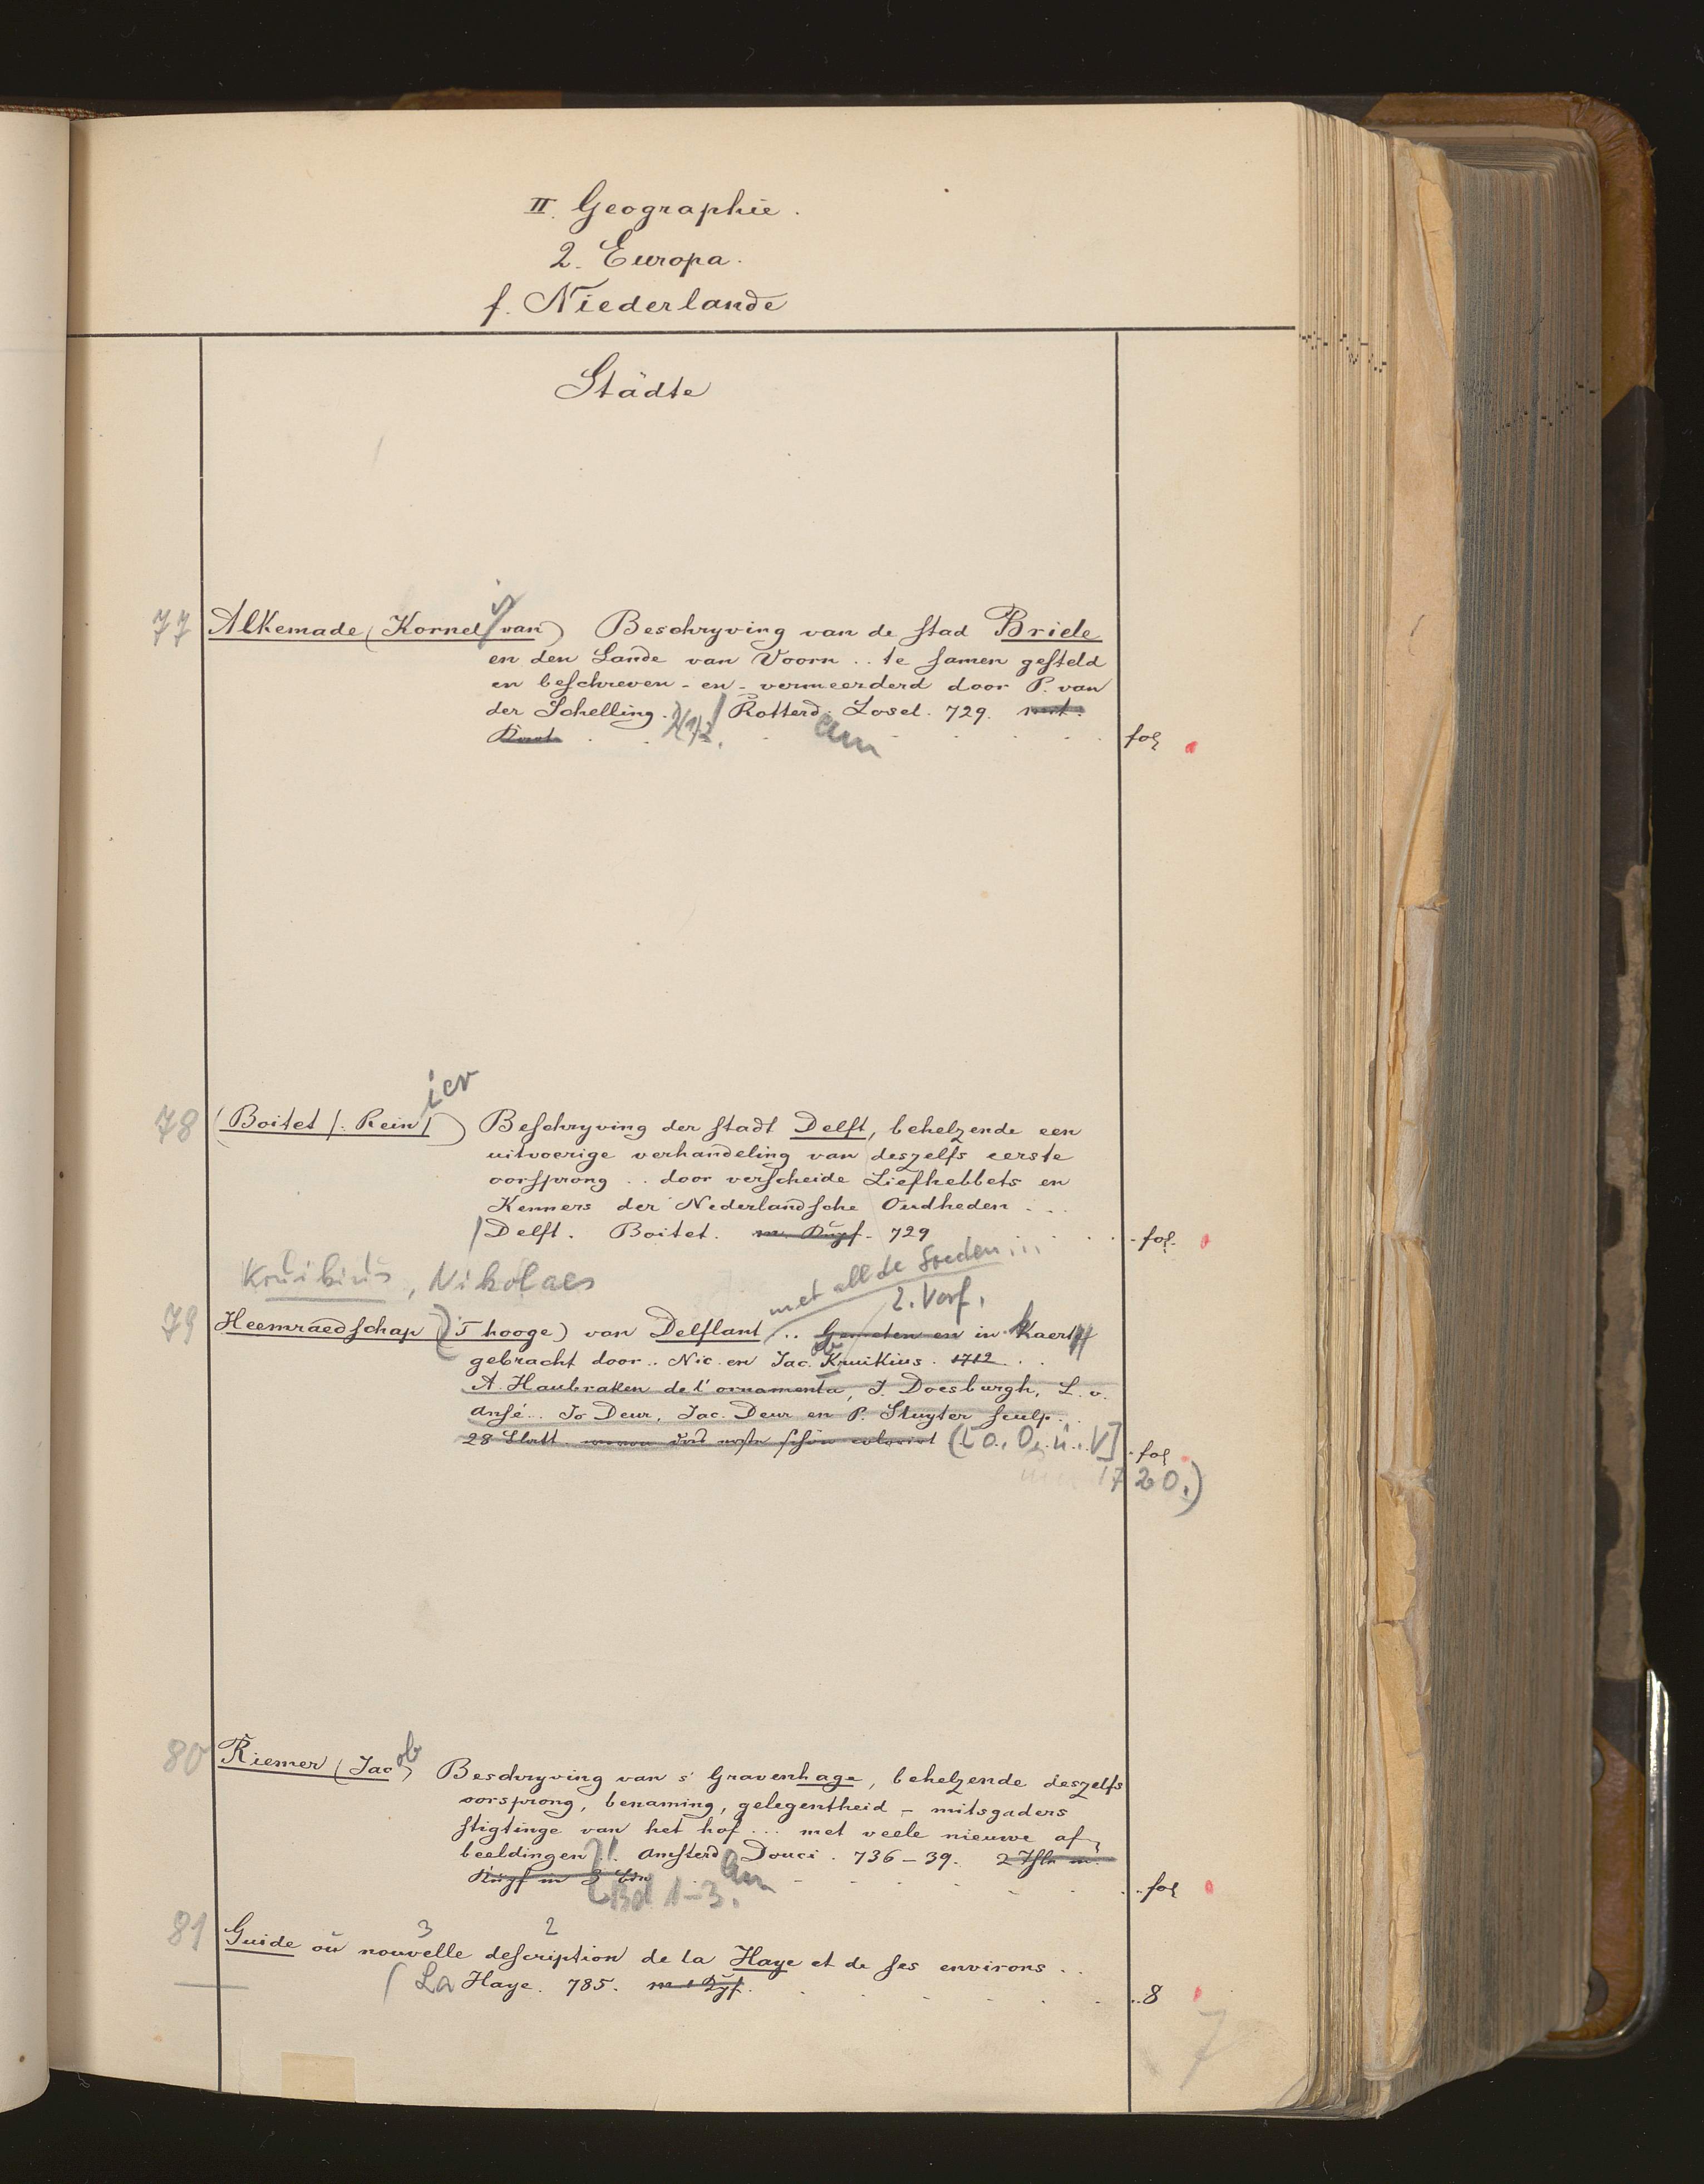 II. Geographie.
2. Europa.
f. Niederlande
Städte
77 Alkemade (Kornelis van) Beschryving van de stad Briele
en den Lande van Voorn .. te samen gesteld
en beschreven - en - vermeerderd door P. van
der Schelling. Rotterdam Losel. 729. mit
fol
78 (Boitet /: Reinier) Beschryving der stadt Delft, behelzende een
uitvoerige verhandeling van deszelfs eerste
oorsprong .. door verscheide Liefhebbets en
Kenners der Nederlandsche Oudheden ...
Delft. Boitet. m. Kupf. 729 fol.
Kruikius, Nikolaes
met all de Steden...
2. Verf.
79 Heemraedschap (T hooge) van Delflant .. Gemeten en in Kaert
gebracht door .. Nic. en Jacob Kruikius. 1712 ..
A. Haubraken del' ornamenta, J. Doesburgh, L. v.
Ansé .. Jo Deur, Jac. Deur en P. Sluyter sculp ..
28 Blatt (o. O. u. V] fol
1720.)
80 Riemer (Jacob) Beschryving van s' Gravenhage, behelzende deszelfs
oorsprong, benaming, gelegentheid - mitsgaders
stigtinge van het hof ... met veele nieuwe af-
beeldingen .. Amsterdam Douci. 736-39. 2 Thle m.
Kupf in 3 Bdn fol
Bd 1-3.
3 2
81 Guide où nouvelle description de la Haye et de ses environs ..
La Haye. 785. m 1 Kpf. 8
7